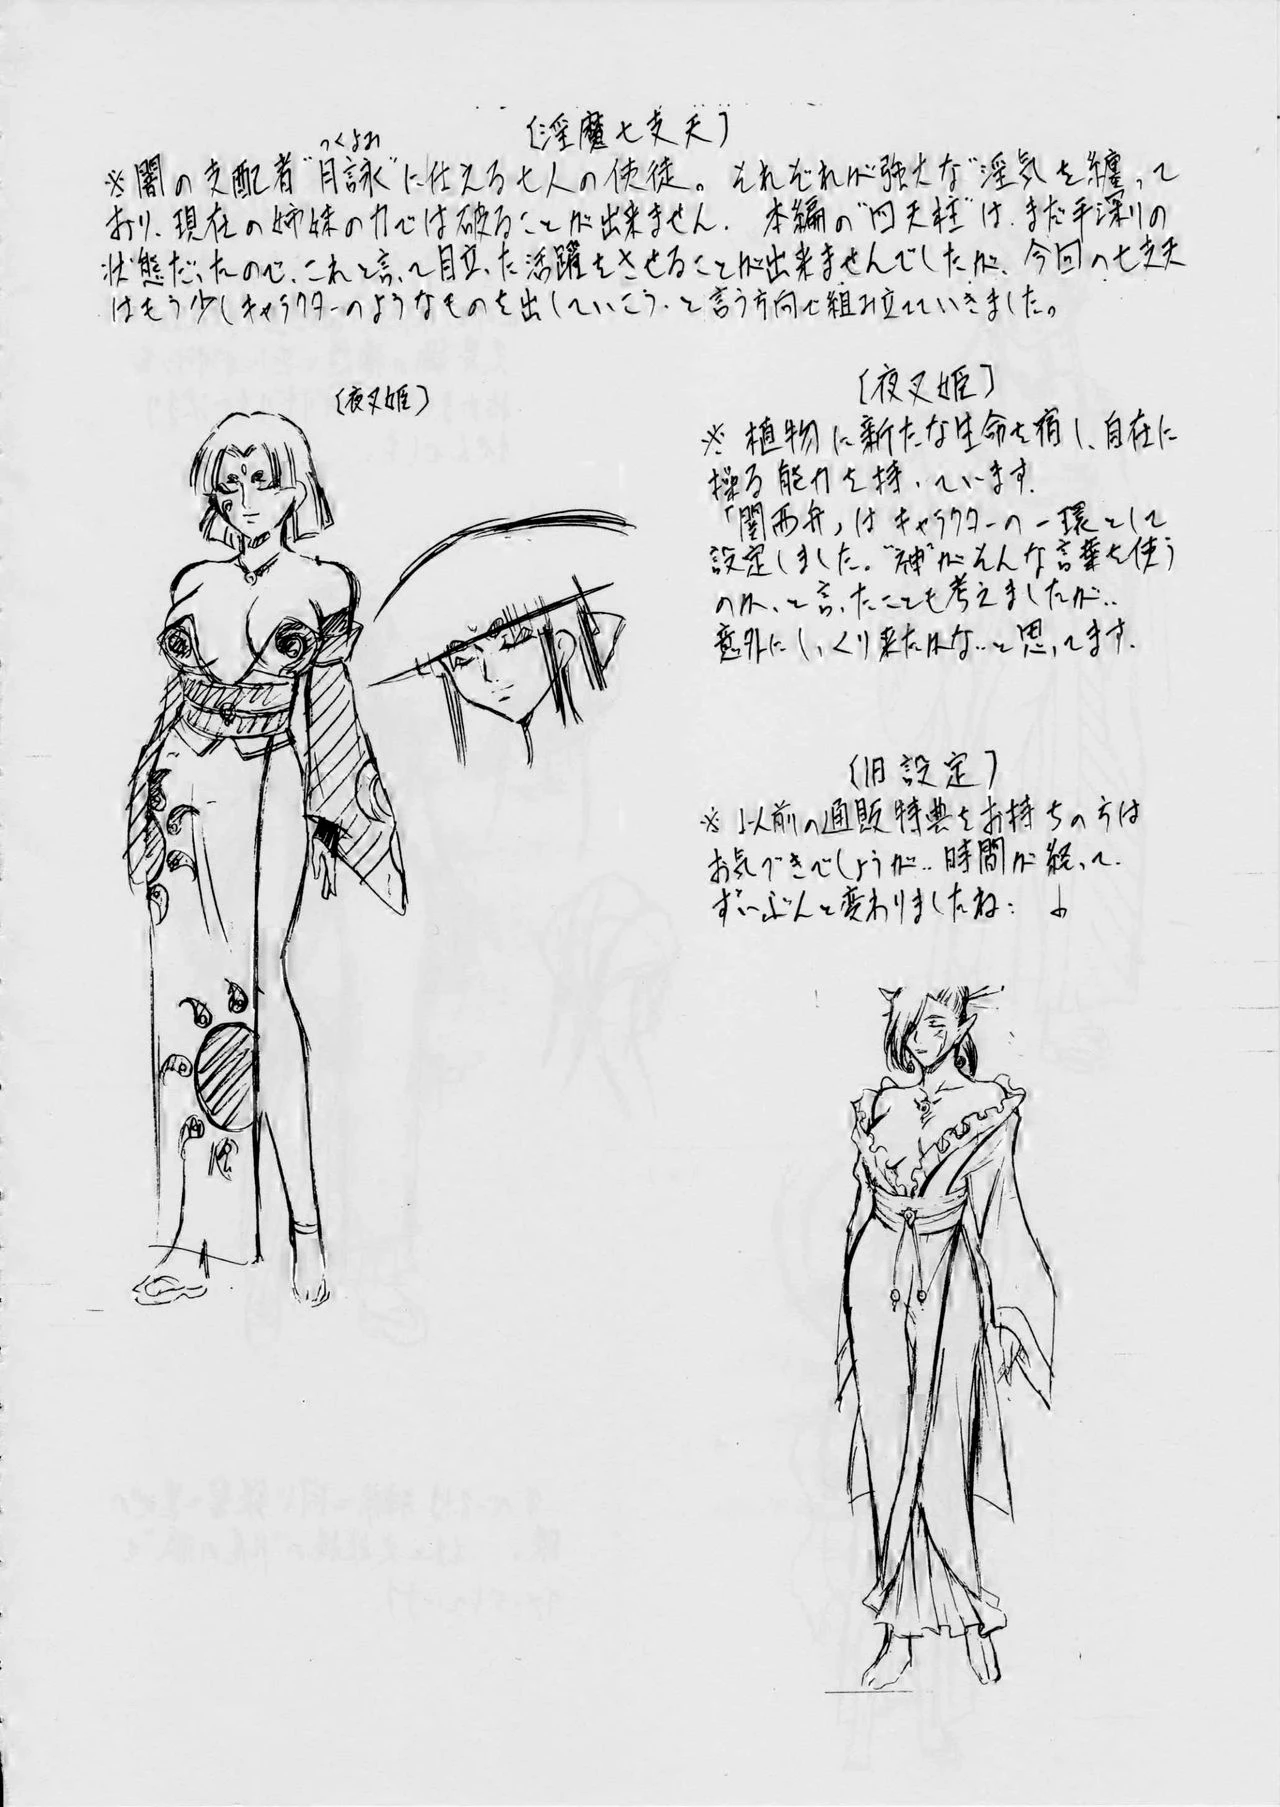 〔淫魔七支天〕
つくよみ
※闇の支配者"月詠"に仕える七人の使徒。それぞれが強大な"淫気を纏って
おり、現在の姉妹の力では破ることが出来ません。本編の"四天柱"は、まだ手深りの
状態だったので、これと言って目立った活躍をさせることが出来ませんでしたが、今回の七支天
はもう少しキャラクターのようなものを出していこう、と言う方向で組み立てていきました。
〔夜叉姫〕
〔夜叉姫〕
※植物に新たな生命を宿し、自在に
操る能力を持っています。
「関西弁」はキャラクターの一環として
設定しました。"神"がそんな言葉を使う
のか、と言ったことも考えましたが‥
意外にしっくり来たかな‥と思ってます。
〔旧設定〕
※以前の通販特典をお持ちの方は
お気づきでしょうが‥時間が経って
ずいぶんと変わりましたね：